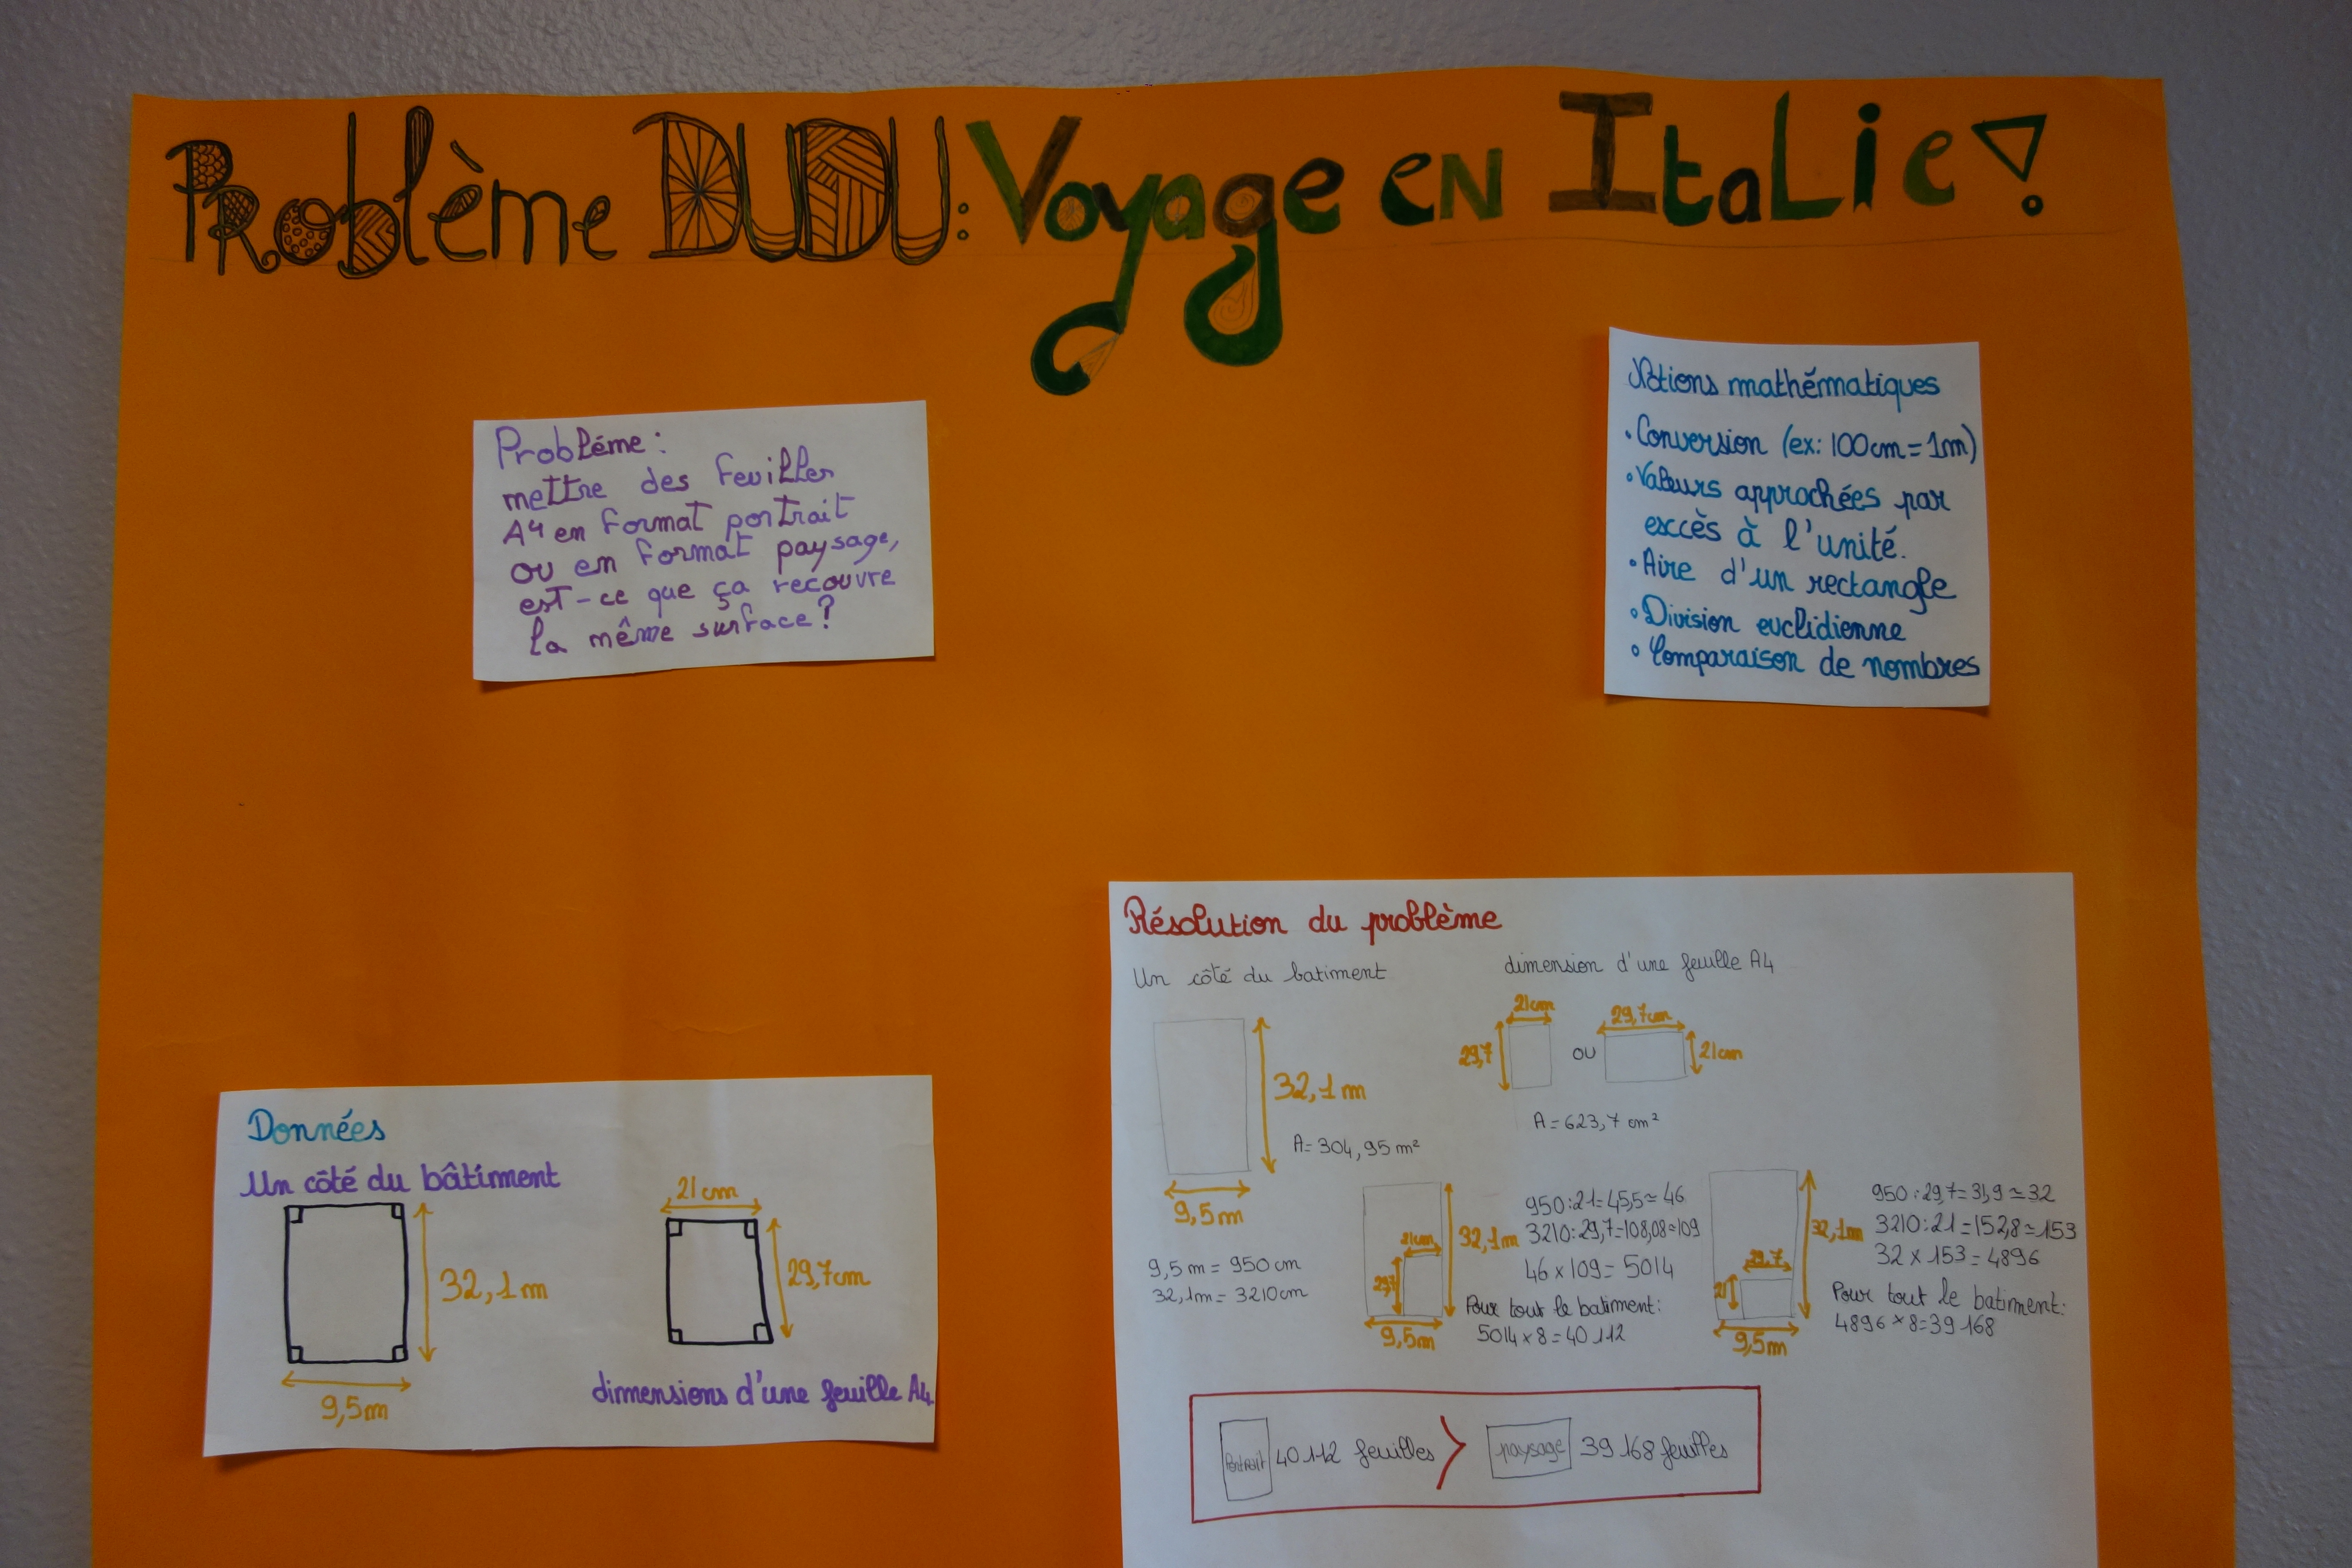 Problème DUDU: Voyage en Italie!
Probléme:
mettre des feuilles
A4 en format portrait
ou en format paysage,
est-ce que ça recouvre
la même surface?
Notions mathématiques
• Conversion (ex: 100cm = 1m)
• Valeurs approchées par
excès à l'unité.
• Aire d'un rectangle
• Division euclidienne
• Comparaison de nombres
Données
Un côté du bâtiment
32,1m
9,5m
21cm
29,7cm
dimensions d'une feuille A4
Résolution du problème
Un côté du batiment
32,1m
A= 304,95 m²
9,5m
9,5 m = 950 cm
32,1m = 3210cm
dimension d'une feuille A4
21cm
29,7
ou
29,7cm
21cm
A = 623,7 cm²
21cm
29,7
32,1m
9,5m
950:21=45,5≃46
3210:29,7=108,08≃109
46 x 109= 5014
Pour tout le batiment:
5014 x 8 = 40 112
29,7
21
32,1m
9,5m
950:29,7=31,9≃32
3210:21=152,8≃153
32 x 153= 4896
Pour tout le batiment:
4896 x 8=39 168
Portrait 40 112 feuilles > paysage 39 168 feuilles